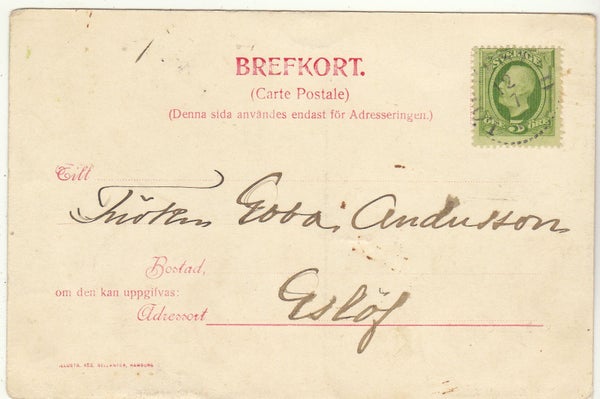 BREFKORT.
(Carte Postale)
(Denna sida användes endast för Adresseringen.)
SVERIGE
5
Till
Fröken Ebba Andersson
Bostad,
om den kan uppgifvas:
Eslöf
Adressort